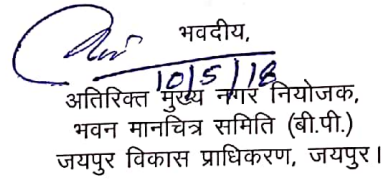 भवदीय,
10/5/18
अतिरिक्त मुख्य नगर नियोजक,
भवन मानचित्र समिति (बी.पी.)
जयपुर विकास प्राधिकरण, जयपुर।